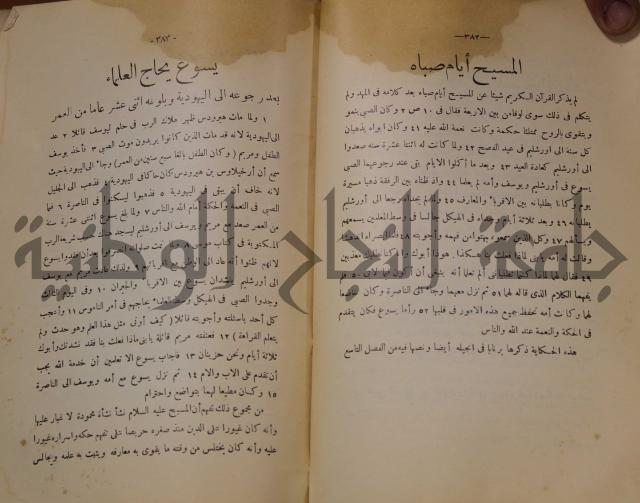 —٣٨٢—
المسيح أيام صباه
لم يذكر القرآن الكريم شيئا عن المسيح أيام صباه بعد كلامه فى المهد ولم
يتكلم فى ذلك سوى لوقا من بين الاربعة فقال فى ١٠ ص ٢ وكان الصبى ينمو
ويتقوى بالروح ممتلئا حكمة وكانت نعمة الله عليه ٤١ وكان ابواه يذهبان
كل سنة الى اورشليم فى عيد الفصح ٤٢ ولما كانت له اثنتا عشرة سنه صعدوا
الى أورشليم كعادة العيد ٤٣ وبعد ما أكملوا الايام بقى عند رجوعهما الصبى
يسوع فى أورشليم ويوسف وأمه لم يعلما ٤٤ واذ ظناه بين الرفقة ذهبا مسيرة
يوم وكانا يطلبانه بين الاقرباء والمعارف ٤٥ ولما لم يجداه رجعا الى أورشليم
يطلبانه ٤٦ وبعد ثلاثة أيام وجداه فى الهيكل جالسا فى وسط المعلمين يسمعهم
ويسألهم ٤٧ وكل الذين سمعوه بهتوا من فهمه وأجوبته ٤٨
وقالت له أمه يا بنى لماذا فعلت بنا هكذا هوذا أبوك وأنا كنا نطلبك معذبين
٤٩ فقال لهما لماذا كنتما تطلباننى ألم تعلما أنه ينبغى أن أكون فيما لابى ٥٠ فلم
يفهما الكلام الذى قاله لهما ٥١ ثم نزل معهما وجاء الى الناصرة وكان خاضعا
لهما وكانت أمه تحفظ جميع هذه الامور فى قلبها ٥٢ وأما يسوع فكان يتقدم
فى الحكمة والنعمة عند الله والناس
هذه الحكاية ذكرها برنابا فى انجيله أيضا ونصها فيه من الفصل التاسع
-٣٨٣-
يسوع يحاج العلماء
بعد رجوعه الى اليهودية وبلوغه اثنى عشر عاما من العمر
١ ولما مات هيرودس ظهر ملاك الرب فى حلم ليوسف قائلا ٢ عد
الى اليهودية لانه قد مات الذين كانوا يريدون موت الصبى ٣ فأخذ يوسف
الطفل ومريم (وكان الطفل بالغا سبع سنين من العمر) وجاء الى اليهودية حيث
سمع أن أرخيلاوس بن هيرودس كان حاكما فى اليهودية ٤ فذهب الى الجليل
لانه خاف أن يبقى فى اليهودية ٥ فذهبوا ليسكنوا فى الناصرة ٦ فنما
الصبى فى النعمة والحكمة أمام الله والناس ٧ ولما بلغ يسوع اثنتى عشرة سنة
من العمر صعد مع مريم ويوسف الى أورشليم ليسجد هناك حسب شريعة الرب
المكتوبة فى كتاب موسى ٨ ولما تمت صلواته انصرفوا بعد أن فقدوا يسوع
لانهم ظنوا أنه عاد الى الوطن مع أقربائهم ٩ ولذلك عادت مريم مع يوسف
الى أورشليم ينشدان يسوع بين الاقرباء والجيران ١٠ وفى اليوم الثالث
وجدوا الصبى فى الهيكل وسط العلماء يحاجهم فى أمر الناموس ١١ وأعجب
كل أحد باسئلته وأجوبته قائلا (كيف أوتى مثل هذا العلم وهو حدث ولم
يتعلم القراءة) ١٢ فعنفته مريم قائلة يا بنى ماذا فعلت بنا فقد نشدتك وأبوك
ثلاثة أيام ونحن حزينان ١٣ فأجاب يسوع الا تعلمين أن خدمة الله يجب
أن تقدم على الاب والام ١٤ ثم نزل يسوع مع أمه ويوسف الى الناصرة
١٥ وكان مطيعا لهما بتواضع واحترام
من مجموع ذلك نفهم أن المسيح عليه السلام نشأ نشأة محمودة لا غبار عليها
وأنه كان غيورا على الدين منذ صغره حريصا على تفهم حكمه واسراره غيورا
عليه وأنه كان يختلس من وقته ما يقوى به معارفه ويثبت به علمه ويجالس
جامعة النجاح الوطنية